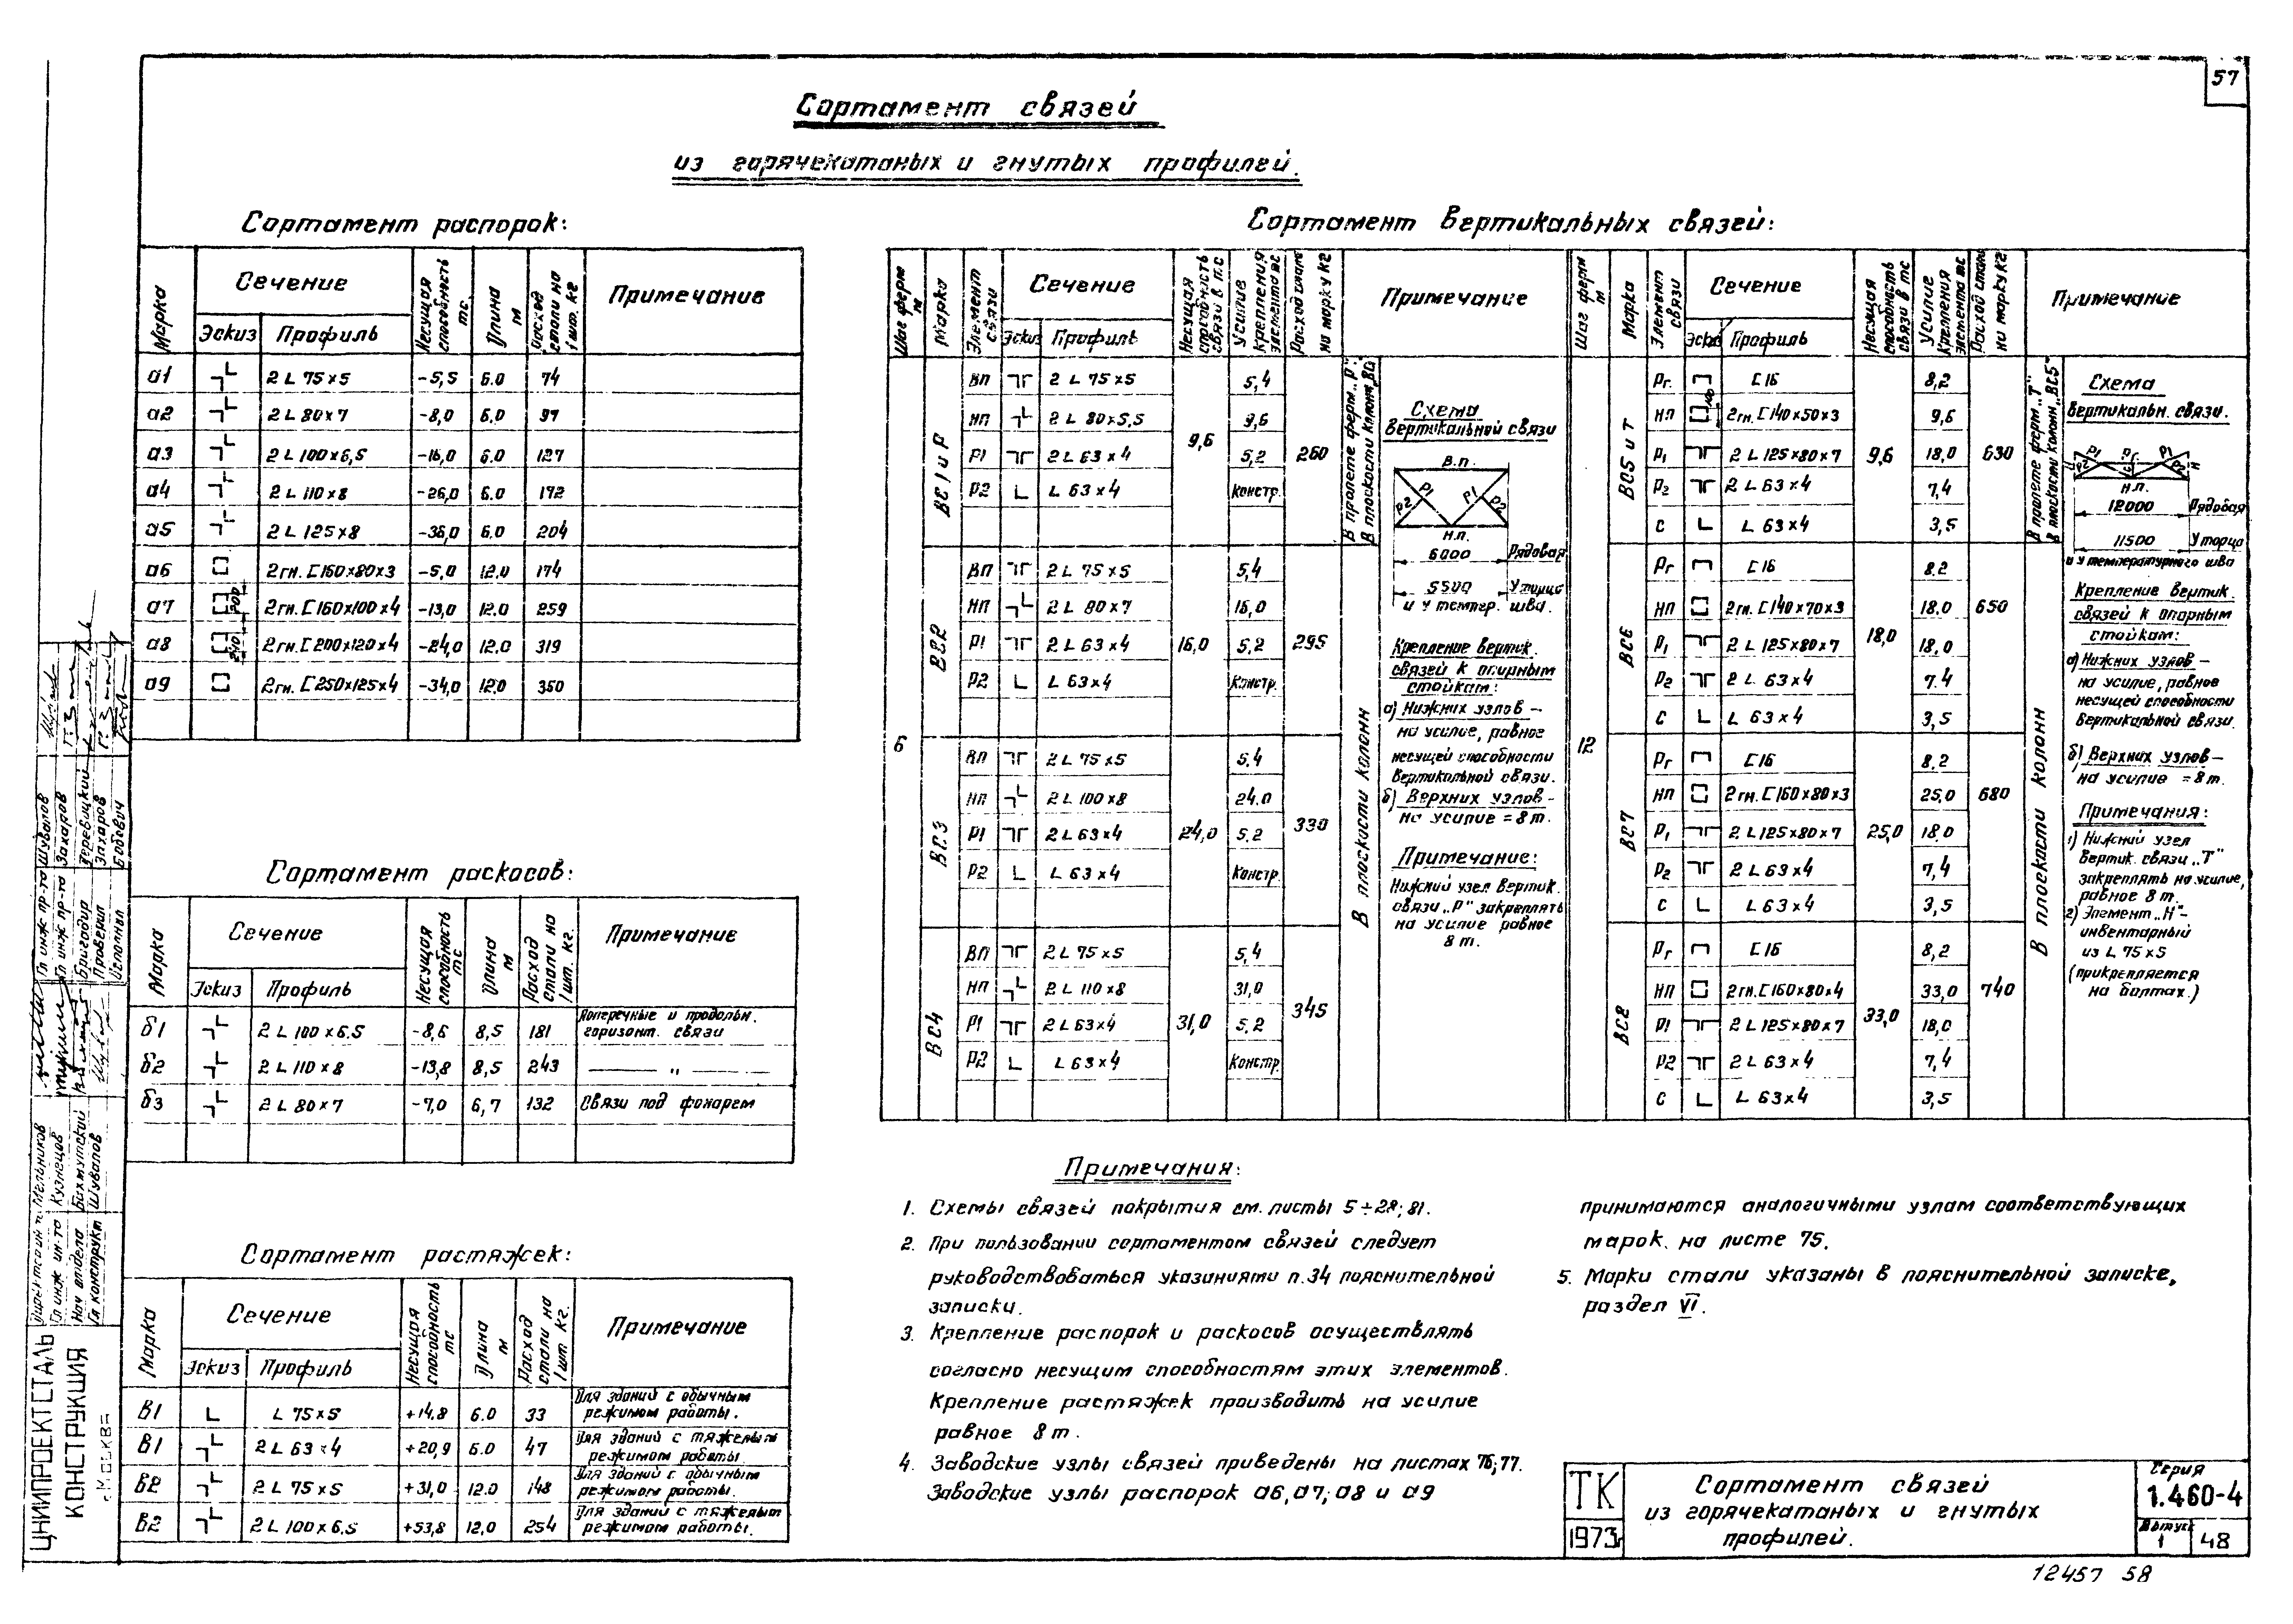 57
Сортамент связей
из горячекатаных и гнутых профилей.
Сортамент распорок:
Марка
Сечение
Эскиз
Профиль
Несущая способность тс
Длина м
Расход стали на 1 шт. кг
Примечание
а1 2 L 75×5 -5,5 6.0 74
а2 2 L 80×7 -8,0 6.0 97
а3 2 L 100×6,5 -16,0 6.0 127
а4 2 L 110×8 -26,0 6.0 172
а5 2 L 125×8 -36,0 6.0 204
а6 2гн. [ 160×80×3 -5,0 12.0 174
а7 200 2гн. [ 160×100×4 -13,0 12.0 259
а8 240 2гн. [ 200×120×4 -24,0 12.0 319
а9 2гн. [ 250×125×4 -34,0 12.0 350
Сортамент раскосов:
Марка
Сечение
Эскиз
Профиль
Несущая способность тс
Длина м
Расход стали на 1 шт. кг.
Примечание
б1 2 L 100×6.5 -8,6 8,5 181 Поперечные и продольн. горизонт. связи
б2 2 L 110×8 -13,8 8,5 243 — " —
б3 2 L 80×7 -7,0 6,7 132 Связи под фонарем
Сортамент растяжек:
Марка
Сечение
Эскиз
Профиль
Несущая способность тс
Длина м
Расход стали на 1 шт кг.
Примечание
В1 L 75×5 +14.8 6.0 33 Для зданий с обычным режимом работы.
В1 2 L 63×4 +20,9 6.0 47 Для зданий с тяжелым режимом работы.
В2 2 L 75×5 +31,0 12.0 148 Для зданий с обычным режимом работы.
В2 2 L 100×6.5 +53,8 12,0 254 Для зданий с тяжелым режимом работы.
Сортамент вертикальных связей:
Шаг ферм м
Марка
Элемент связи
Сечение
Эскиз
Профиль
Несущая способность связи в т.с
Усилие крепления элемента тс
Расход стали на марку кг
Примечание
6
ВС1 и Р
ВП 2 L 75×5 5,4
НП 2 L 80×5,5 9,6
Р1 2 L 63×4 9,6 5,2 260
Р2 L 63×4 Констр.
ВС2
ВП 2 L 75×5 5,4
НП 2 L 80×7 16,0
Р1 2 L 63×4 16,0 5.2 295
Р2 L 63×4 Констр.
ВС3
ВП 2 L 75×5 5.4
НП 2 L 100×8 24.0
Р1 2 L 63×4 24,0 5.2 330
Р2 L 63×4 Констр.
ВС4
ВП 2 L 75×5 5,4
НП 2 L 110×8 31,0
Р1 2 L 63×4 31,0 5.2 345
Р2 L 63×4 Констр.
В пролете ферм „Р"
В плоскости колонн
Схема
вертикальной связи
В.п.
Р2 Р1 Р1 Р2
Н.п.
6000 Рядовая
5500 У торца
и у темпер. шва.
Крепление вертик.
связей к опорным
стойкам:
а) Нижних узлов –
на усилие, равное
несущей способности
вертикальной связи.
б) Верхних узлов –
на усилие = 8 т.
Примечание:
Нижний узел вертик.
связи „Р" закреплять
на усилие равное
8 т.
Шаг ферм м
Марка
Элемент связи
Сечение
Эскиз
Профиль
Несущая способность связи в тс
Усилие крепления элемента тс
Расход стали на марку кг
Примечание
12
ВС5 и Т
Рг. [ 16 8,2
НП 2гн. [ 140×50×3 9,6
Р1 2 L 125×80×7 9,6 18,0 630
Р2 2 L 63×4 7,4
С L 63×4 3,5
ВС6
Рг [ 16 8.2
НП 2гн. [ 140×70×3 18.0 650
Р1 2 L 125×80×7 18,0 18,0
Р2 2 L 63×4 7.4
С L 63×4 3,5
ВС7
Рг [ 16 8,2
НП 2гн. [ 160×80×3 25,0 680
Р1 2 L 125×80×7 25,0 18,0
Р2 2 L 63×4 7,4
С L 63×4 3,5
ВС2
Рг [ 16 8,2
НП 2гн. [ 160×80×4 33,0 740
Р1 2 L 125×80×7 33,0 18,0
Р2 2 L 63×4 7,4
С L 63×4 3,5
В пролете ферм „Т"
В плоскости колонн „ВС5"
В плоскости колонн
Схема
вертикальн. связи.
Р2 Р1 Рг С Р1 Р2 Н
Н.п.
12000 Рядовая
11500 У торца
и у температурного шва
Крепление вертик.
связей к опорным
стойкам:
а) Нижних узлов –
на усилие, равное
несущей способности
вертикальной связи.
б) Верхних узлов –
на усилие = 8 т.
Примечания:
1) Нижний узел
вертик. связи „Т"
закреплять на усилие,
равное 8 т.
2) Элемент „Н"–
инвентарный
из L 75×5
(прикрепляется
на болтах.)
Примечания:
1. Схемы связей покрытия см. листы 5÷28; 81.
2. При пользовании сортаментом связей следует
руководствоваться указаниями п.34 пояснительной
записки.
3. Крепление распорок и раскосов осуществлять
согласно несущим способностям этих элементов.
Крепление растяжек производить на усилие
равное 8 т.
4. Заводские узлы связей приведены на листах 76; 77.
Заводские узлы распорок а6, а7; а8 и а9
принимаются аналогичными узлам соответствующих
марок на листе 75.
5. Марки стали указаны в пояснительной записке,
раздел VI.
ТК
1973г
Сортамент связей
из горячекатаных и гнутых
профилей.
Серия
1.460-4
Выпуск
1
48
12457 58
ЦНИИПРОЕКТСТАЛЬ
КОНСТРУКЦИЯ
г. Москва
Мельников
Гл инж ин-та Кузнецов
Нач отдела Бахмутский
Гл конструкт Шувалов
Гл инж пр-та Шувалов
Гл инж пр-та Захаров
Бригадир
Проверил Захаров
Исполнил